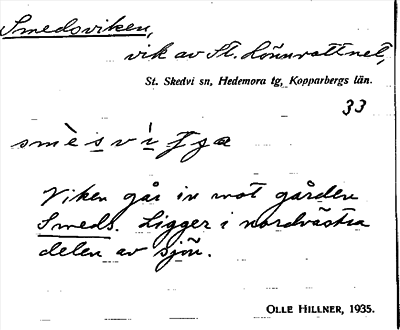 Smedsviken,
vik av St. Lönnvattnet,
St. Skedvi sn, Hedemora tg, Kopparbergs län.
33
Viken går in mot gården
Smeds. Ligger i nordvästra
delen av sjön.
OLLE HILLNER, 1935.